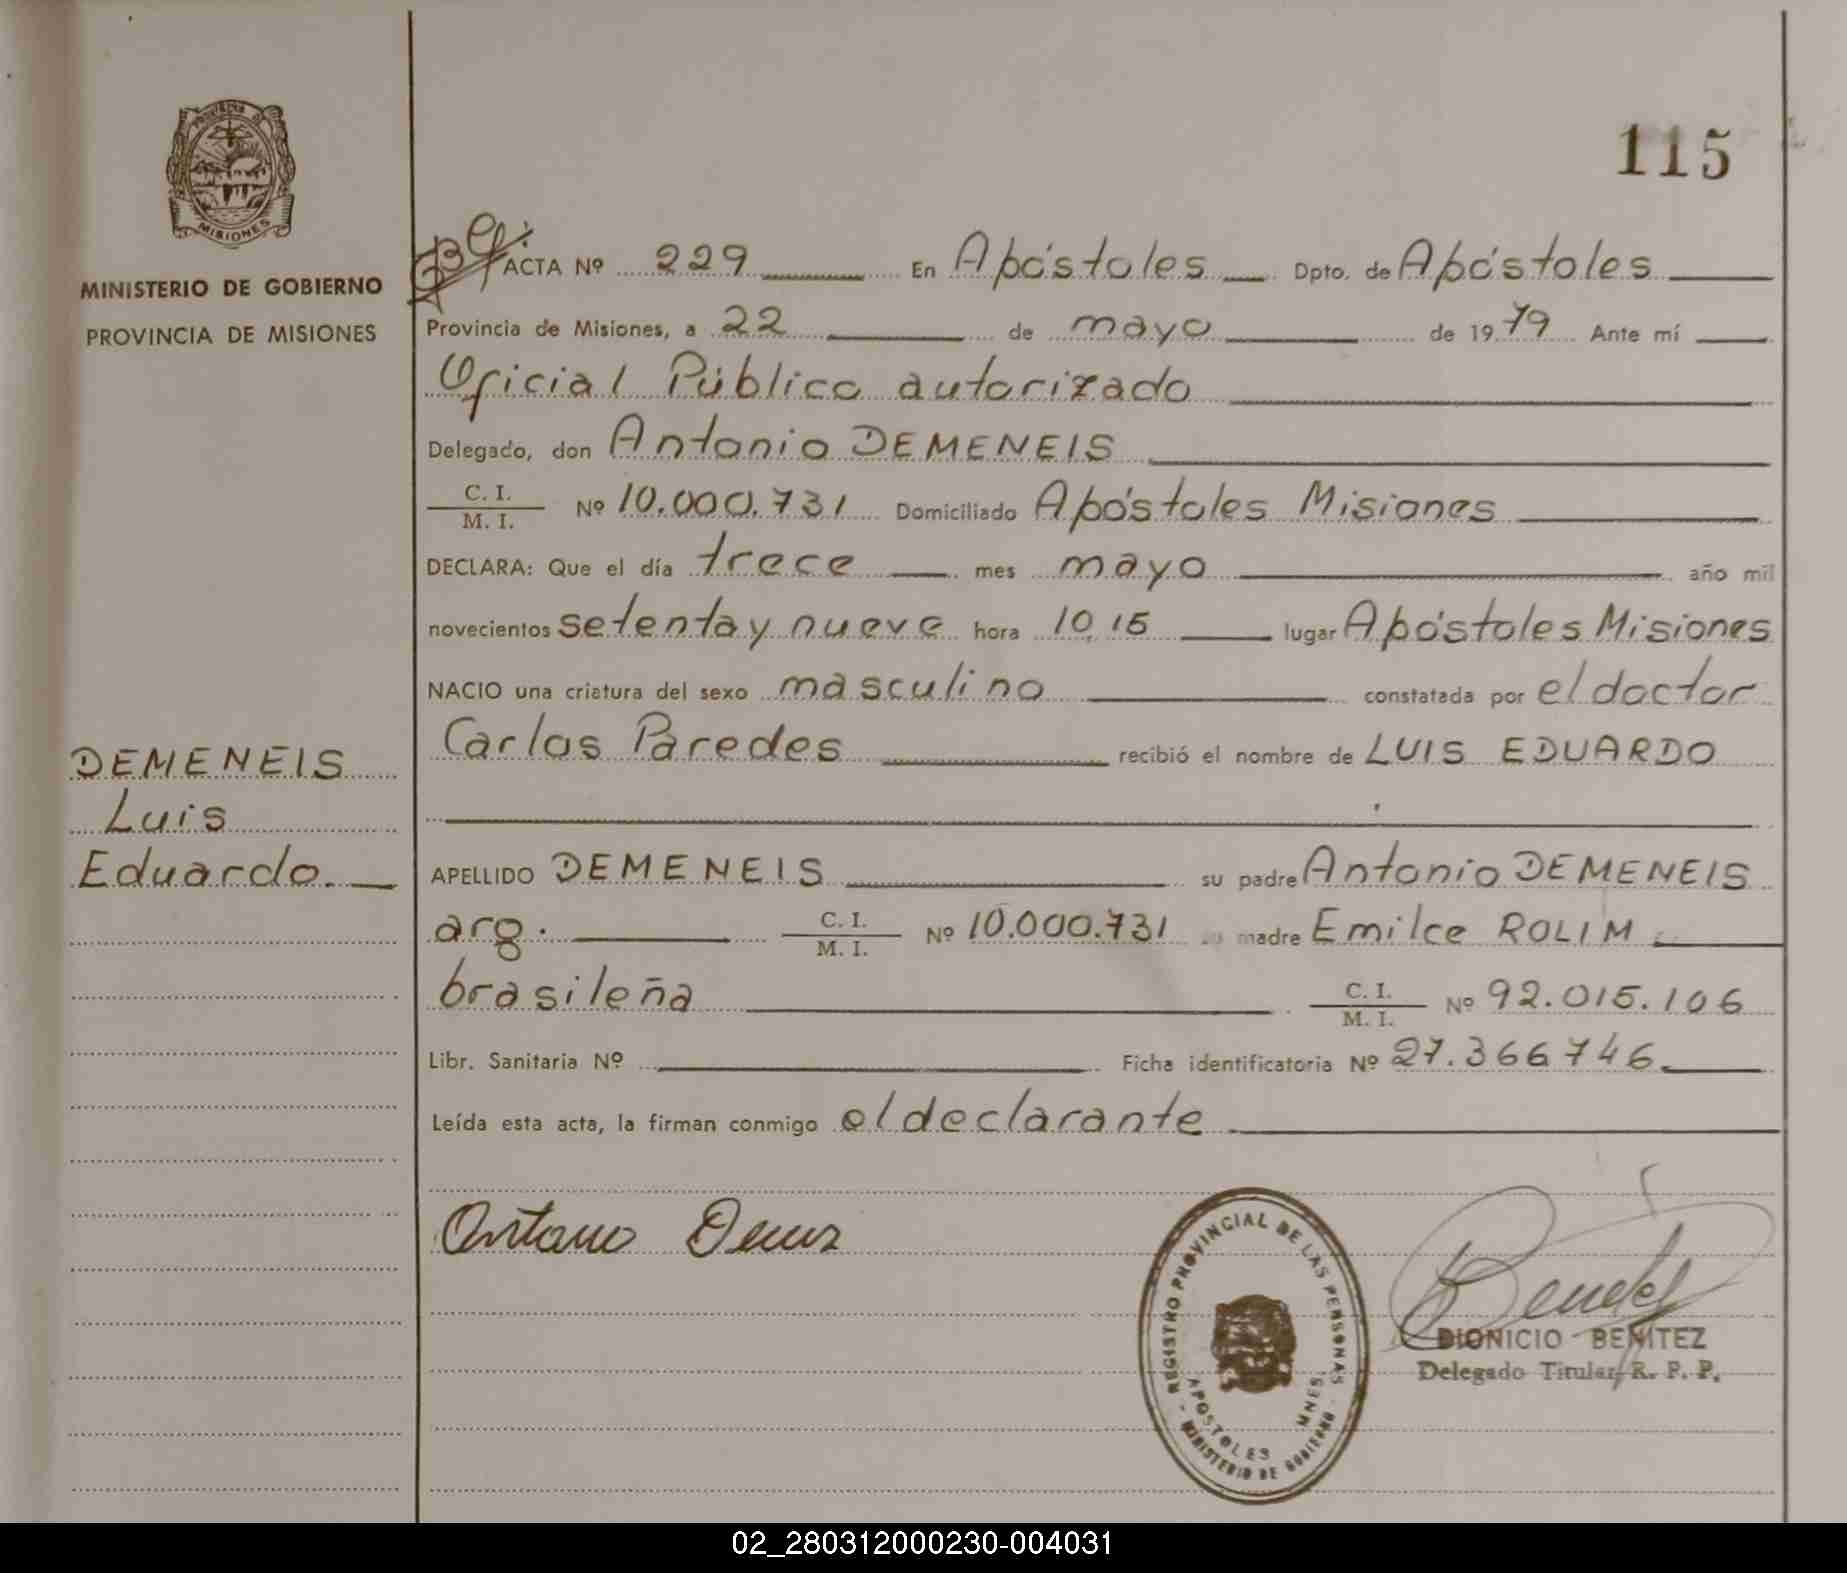 115
MINISTERIO DE GOBIERNO
PROVINCIA DE MISIONES
MISIONES
ACTA Nº 229 En Apóstoles Dpto. de Apóstoles
Provincia de Misiones, a 22 de mayo de 1979 Ante mí
Oficial Público autorizado
Delegado, don Antonio DEMENEIS
C. I.
M. I. Nº 10.000.731 Domiciliado Apóstoles Misiones
DECLARA: Que el día trece mes mayo año mil
novecientos setenta y nueve hora 10,15 lugar Apóstoles Misiones
NACIO una criatura del sexo masculino constatada por el doctor
Carlos Paredes recibió el nombre de LUIS EDUARDO
DEMENEIS
Luis
Eduardo.
APELLIDO DEMENEIS su padre Antonio DEMENEIS
arg. C. I.
M. I. Nº 10.000.731 su madre Emilce ROLIM
brasileña C. I.
M. I. Nº 92.015.106
Libr. Sanitaria Nº Ficha identificatoria Nº 27.366.746
Leída esta acta, la firman conmigo el declarante
REGISTRO PROVINCIAL DE LAS PERSONAS
APOSTOLES MNES
MINISTERIO DE GOBIERNO
DIONICIO BENITEZ
Delegado Titular R. P. P.
02_280312000230-004031